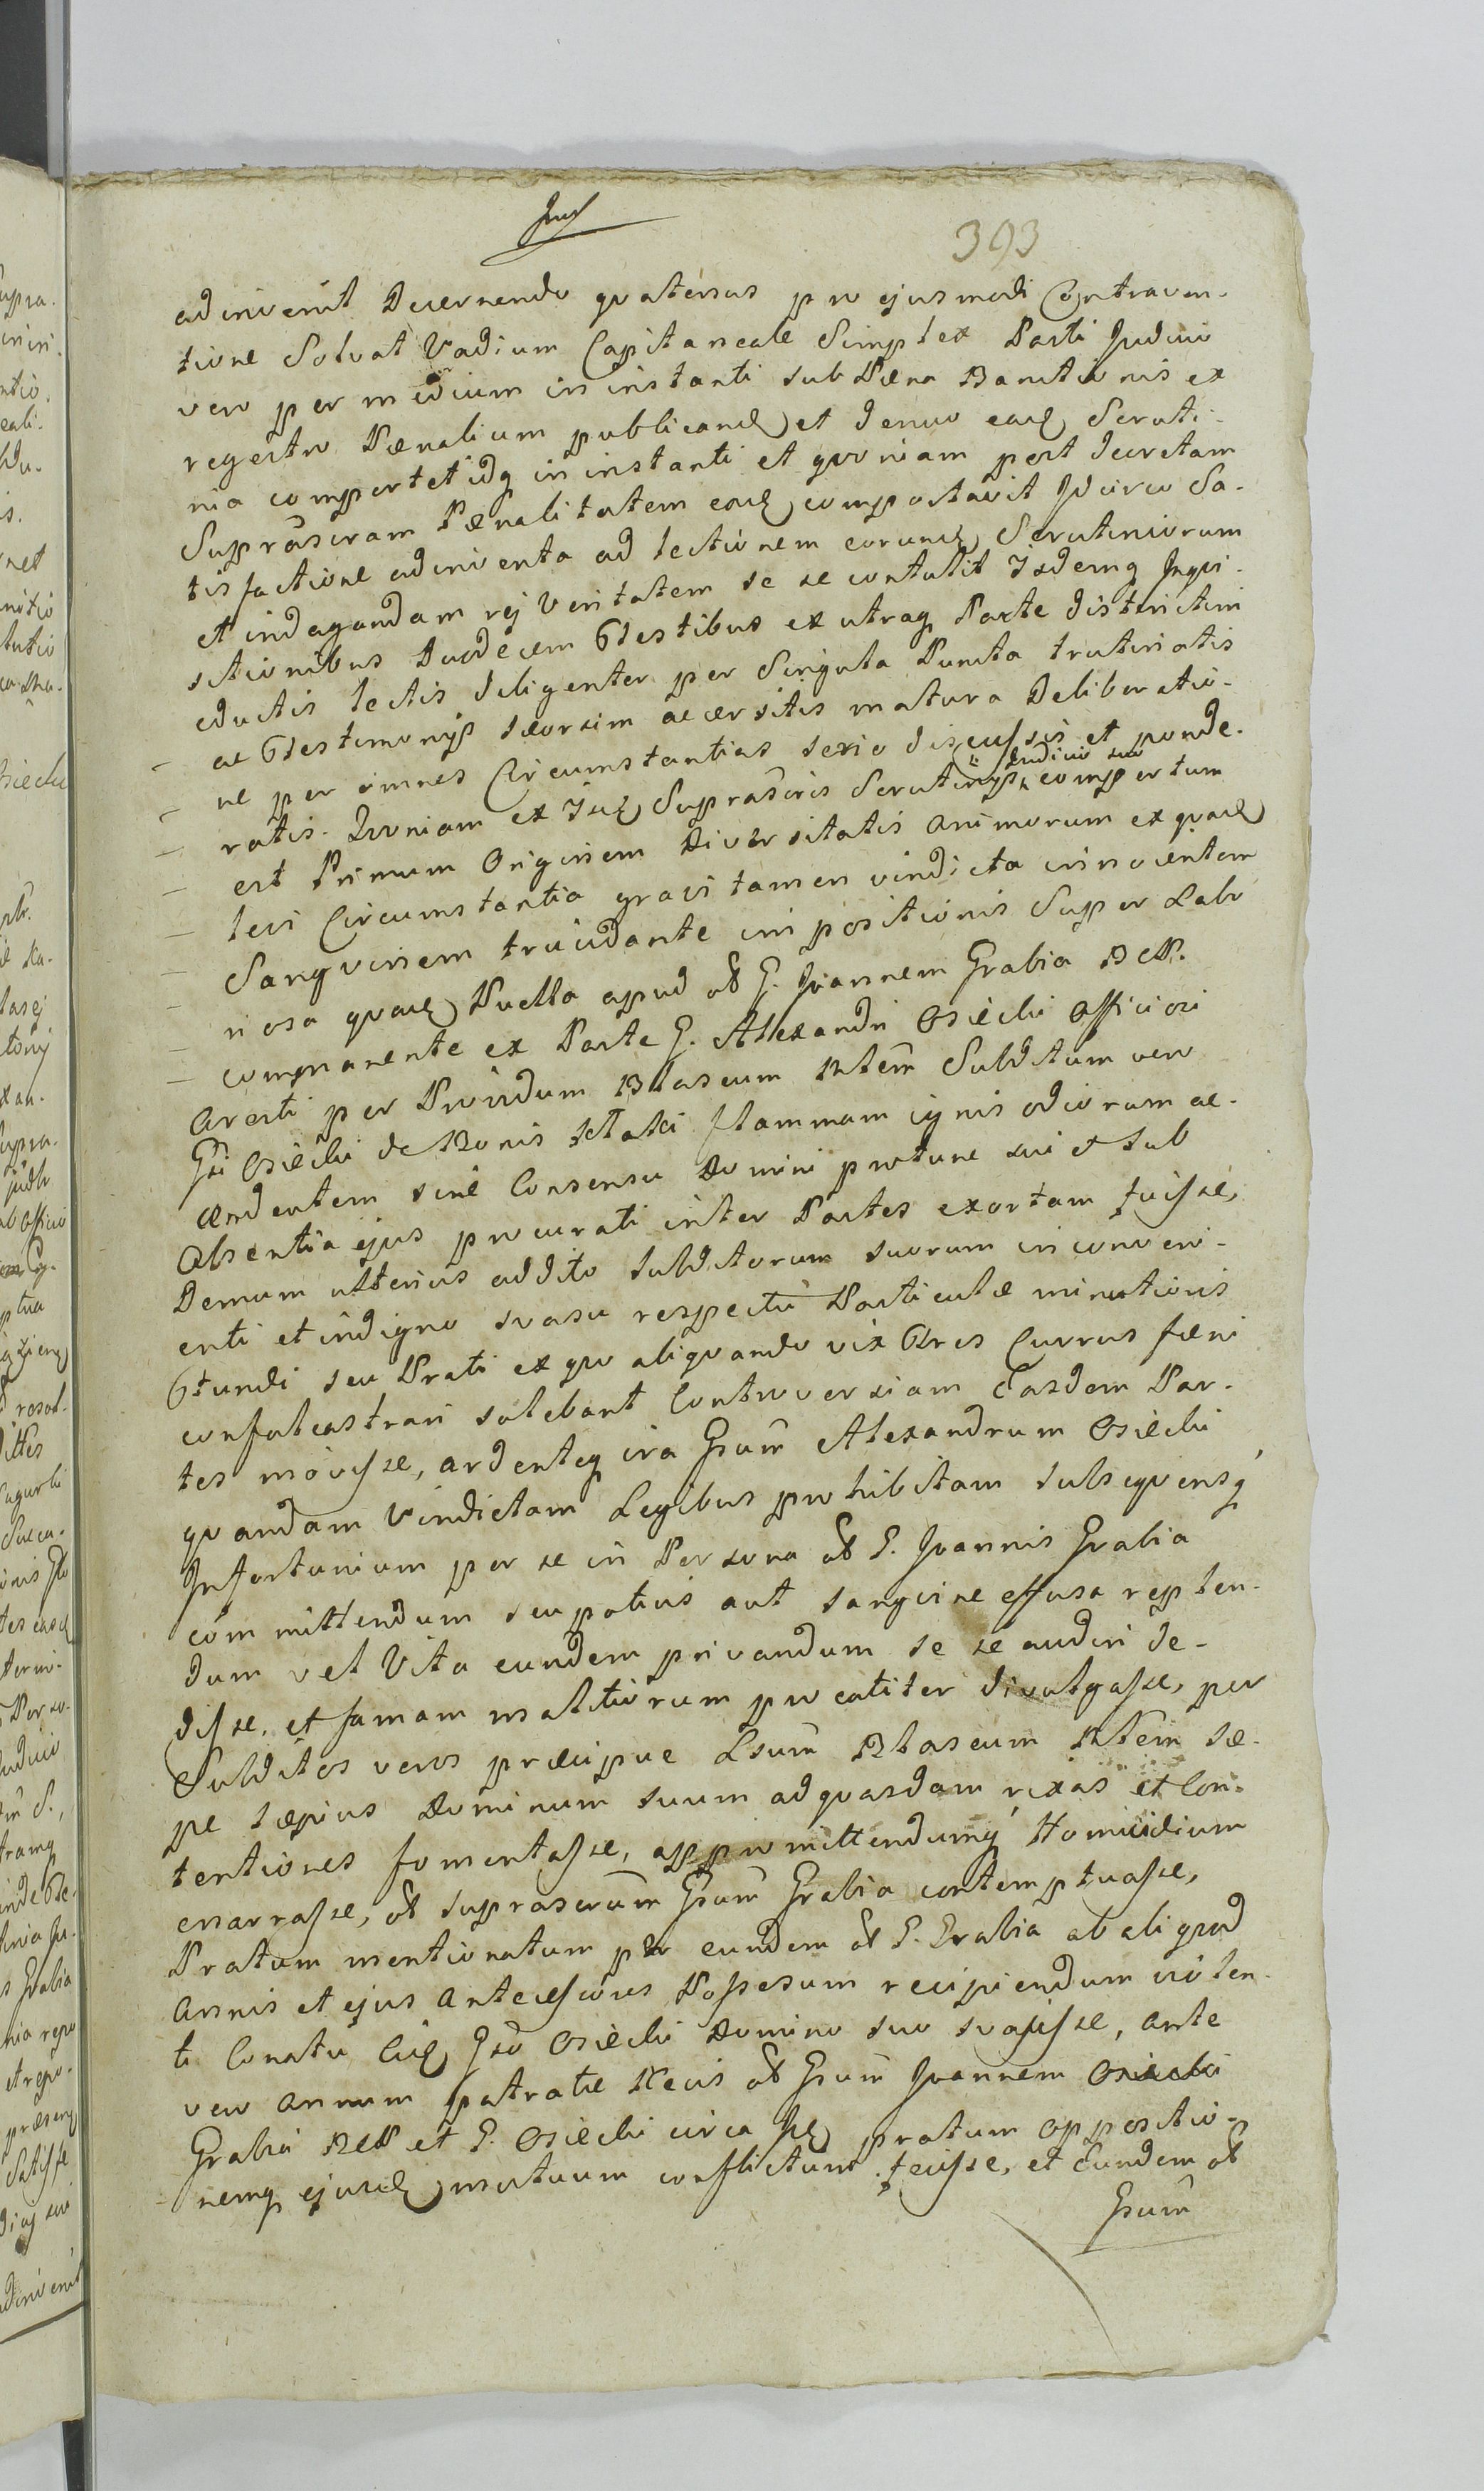 393
adinvenit Decernendo qvatenus pro ejusmodi Contraven-
tione Solvat Vadium Capitaneale Simplex Parti Judicio
vero per medium in instanti sub Pæna Bannitionis ex
regestro Pænalium publicand et denuo eand Scruti-
nia comportet idq in instanti et qvoniam post decretam
Suprascram Pænalitatem eand comportavit Idcirco Sa-
tisfactione adinventa ad lectionem eorund Scrutiniorum
et indagandam rej Veritatem se se contulit Isdemq Inqvi-
sitionibus Duodecem Testibus ex utraq Parte districtim
eductis lectis diligenter per Singula Puncta trutinatis
ac Testimonijs seorsim accersitis matura Deliberatio-
ne per omnes Circumstantias serio discussis et ponde-
ratis. Qvoniam ex Ijsd Suprascris Scrutinijs Judicio suo compertum
est Primum Originem Diversitatis Animorum ex qvad
levi Circumstantia gravi tamen vindicta innocentem
Sangvinem trucidante impositionis Super Labo
riosa qvad Puella apud ol G. Joannem Grabia
commanente ex Parte G. Alexandri Osiecki Officiosi
Aresti per Providum Blaseum Ptem Subditum vero
Gsi Osiecki de Bonis flammam ignis odiorum ac-
cendentem sine Consensu Domini protunc sui et sub
Absentia ejus procurati inter Partes exortam fuisse,
Demum ulterius addito subditorum suorum inconveni-
enti et indigno svasu respectu Particulæ minutioris
Fundi seu Prati ex qvo aliqvando vix Tres Currus fæni
confalcastrari solebant Controversiam Easdem Par-
tes movisse, ardenteq ira Gsum Alexandrum Osiecki
qvandam Vindictam Legibus prohibitam subseqvensq
Infortunium per se in Persona ol G. Joannis Grabia
committendum seu potius aut sangvine effuso replen-
dum vel Vita eundem privandum se se audiri de-
disse, et famam malitiorum procaliter divulgasse, per
Subditos vero præcipue Lsum Blaseum Ptem sæ-
pe sæpius Dominum suum ad qvasdam rixas et Con-
tentiones fomentasse, appromittendumq Homicidium
enarrasse, ol suprascrum Gsum Grabia contemptuasse,
Pratum mentionatum per eundem ol G. Grabia ab aliqvod
Annis et ejus Antecessores Possesum recipiendum violen-
ti Conatu Gso Osiecki Domino suo svasisse, Ante
vero Annum patratæ Necis ol Gsum Joannem Osiecki
Grabia et G. Osiecki circa pratum oppositio-
nemq ejusd mutuum conflictum fuisse, et Eundem ol
Gsum